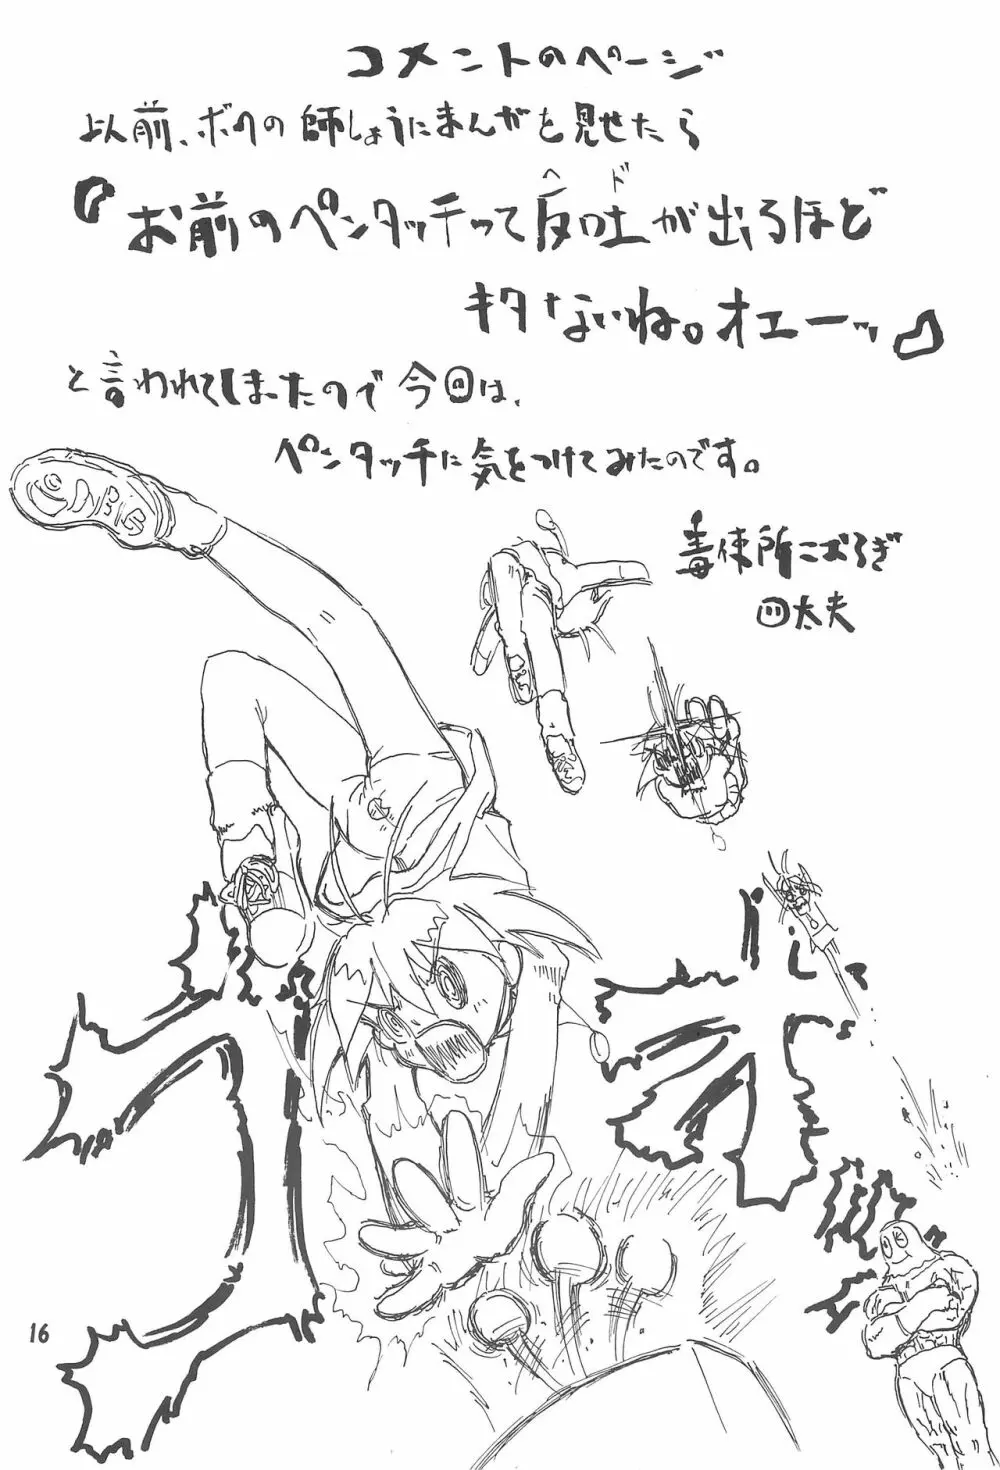 コメントのページ
以前、ボクの師しょうにまんがを見せたら
『お前のペンタッチって反吐が出るほど
ヘド
キタないね。オエーッ』
と言われてしまったので今回は、
ペンタッチに気をつけてみたのです。
毒使所こおろぎ
四太夫
16